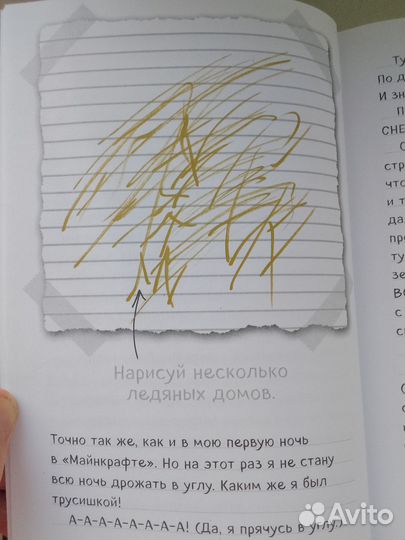 Нарисуй несколько
ледяных домов.
Точно так же, как и в мою первую ночь
в «Майнкрафте». Но на этот раз я не стану
всю ночь дрожать в углу. Каким же я был
трусишкой!
А-А-А-А-А-А-А-А! (Да, я прячусь в углу.)
По д
И зн
СНЕ
стр
что
и т
да
пр
ту
зе
с
Avito